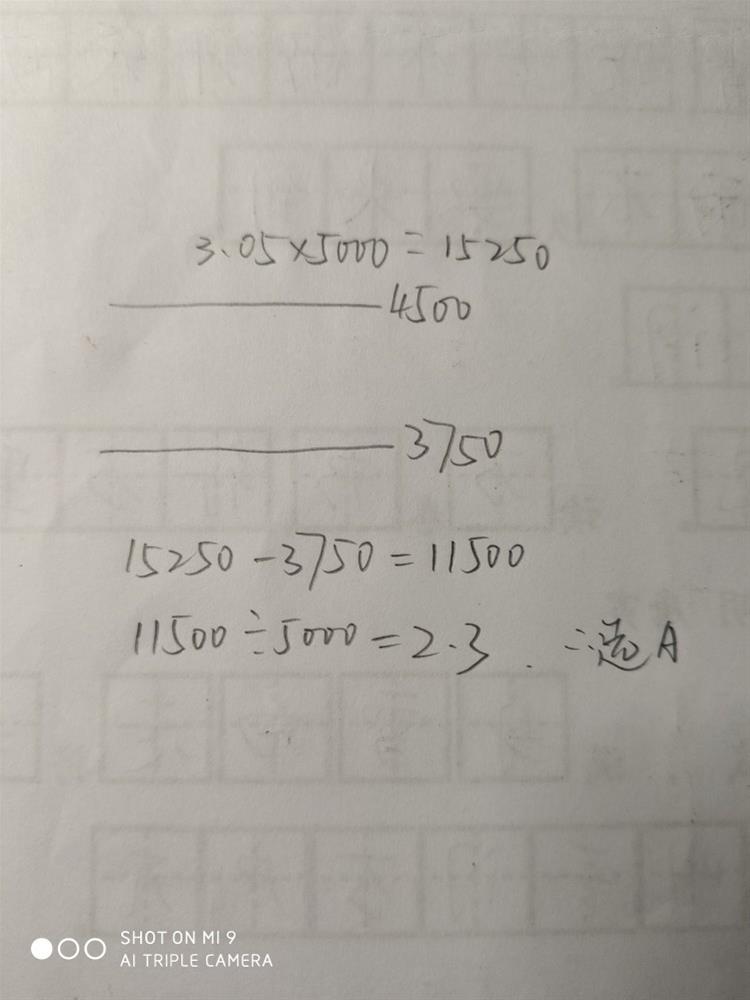 3.05×5000=15250
4500
3750
15250-3750=11500
11500÷5000=2.3. ∴选A
SHOT ON MI 9
AI TRIPLE CAMERA